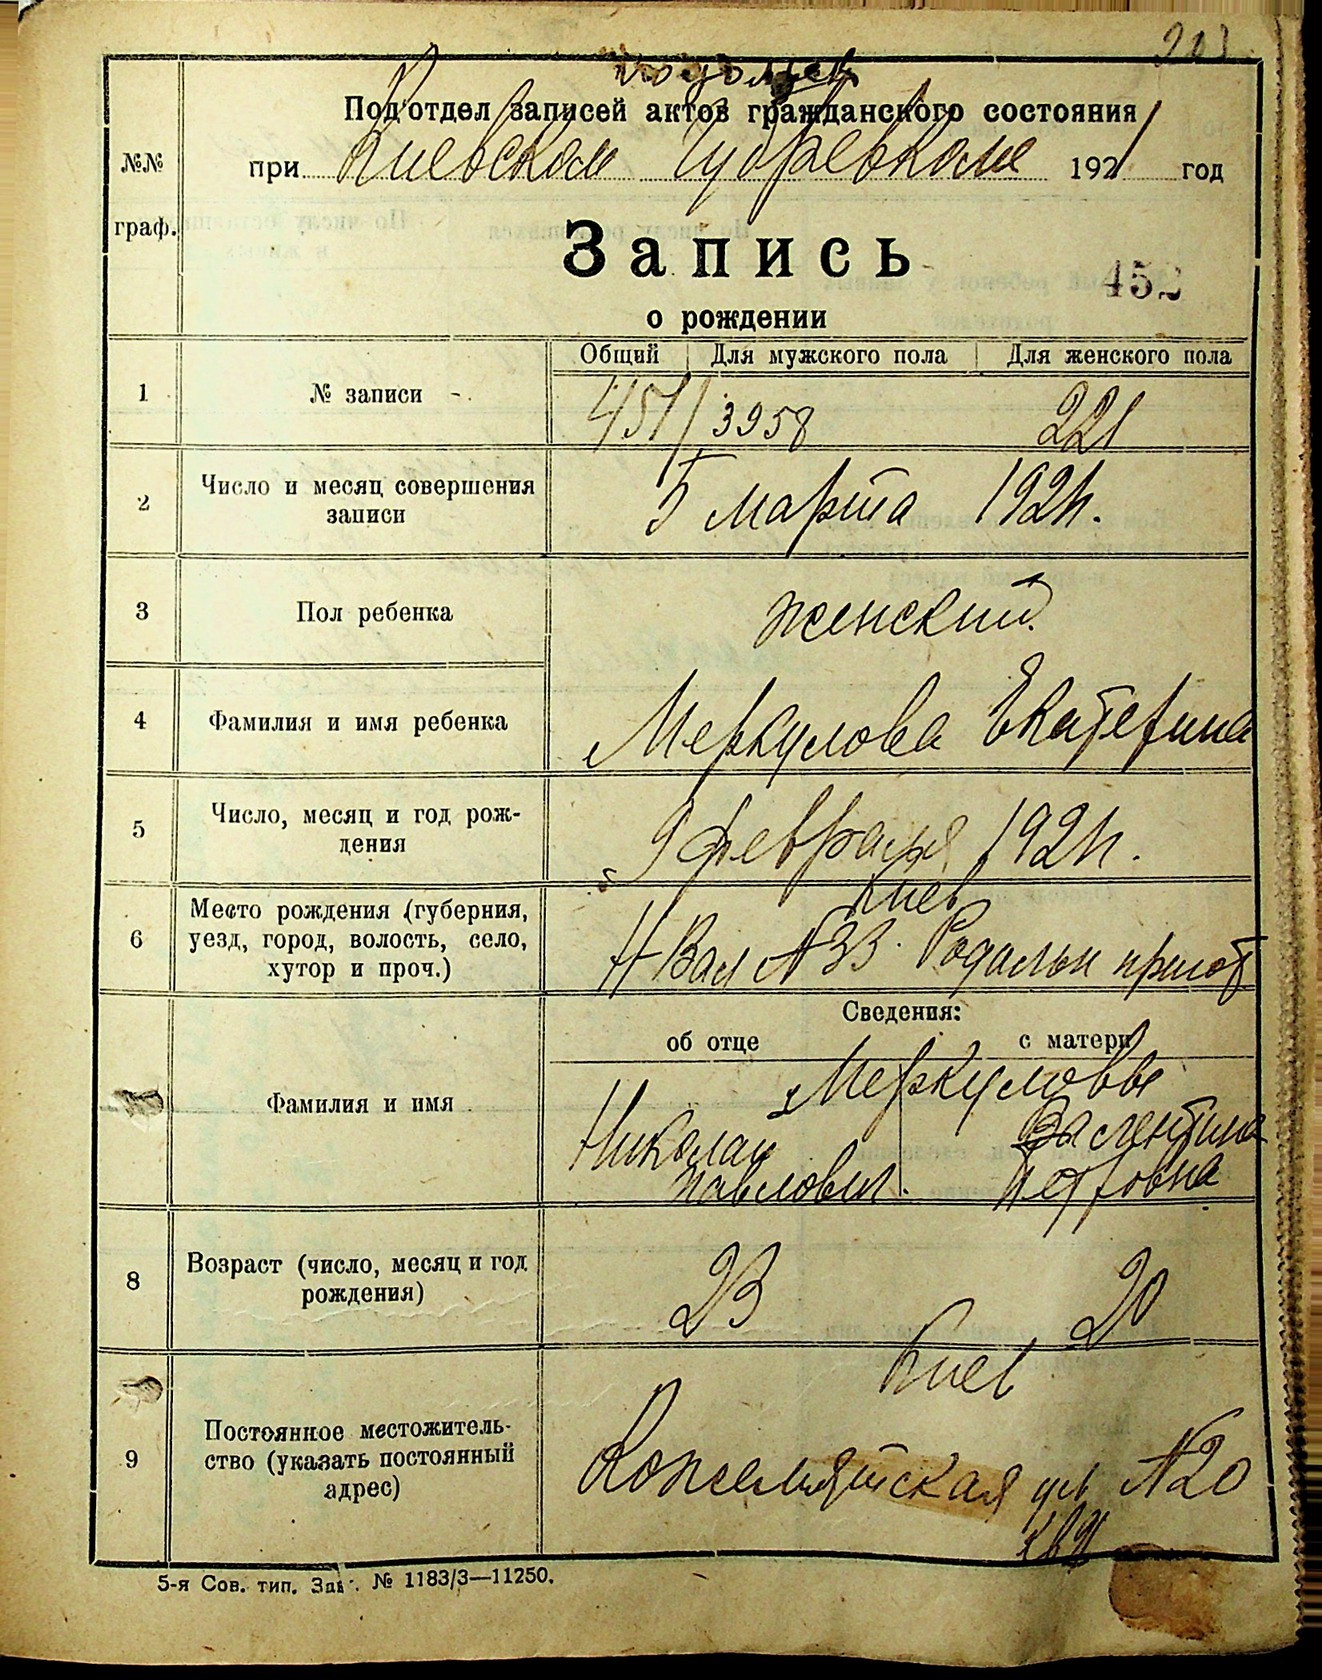 203
Под'отдел записей актов гражданского состояния
при Киевском Губревкоме 1921 год
№№
граф.
Запись
452
о рождении
Общий Для мужского пола Для женского пола
1 № записи 451/3958 221
2 Число и месяц совершения
записи
5 марта 1921г.
3 Пол ребенка женский.
4 Фамилия и имя ребенка Меркулова Екатерина
5 Число, месяц и год рож-
дения
9 февраля 1921г.
6 Место рождения (губерния,
уезд, город, волость, село,
хутор и проч.)
Киев
Н Вал №33. Родильн приют
Сведения:
об отце с матери
Фамилия и имя
Меркуловы
Николай Валентина
Павлович. Петровна
8 Возраст (число, месяц и год
рождения)
23 20
9 Постоянное местожитель-
ство (указать постоянный
адрес)
Киев
Кожемятская ул №20
5-я Сов. тип. Зак. № 1183/3—11250.